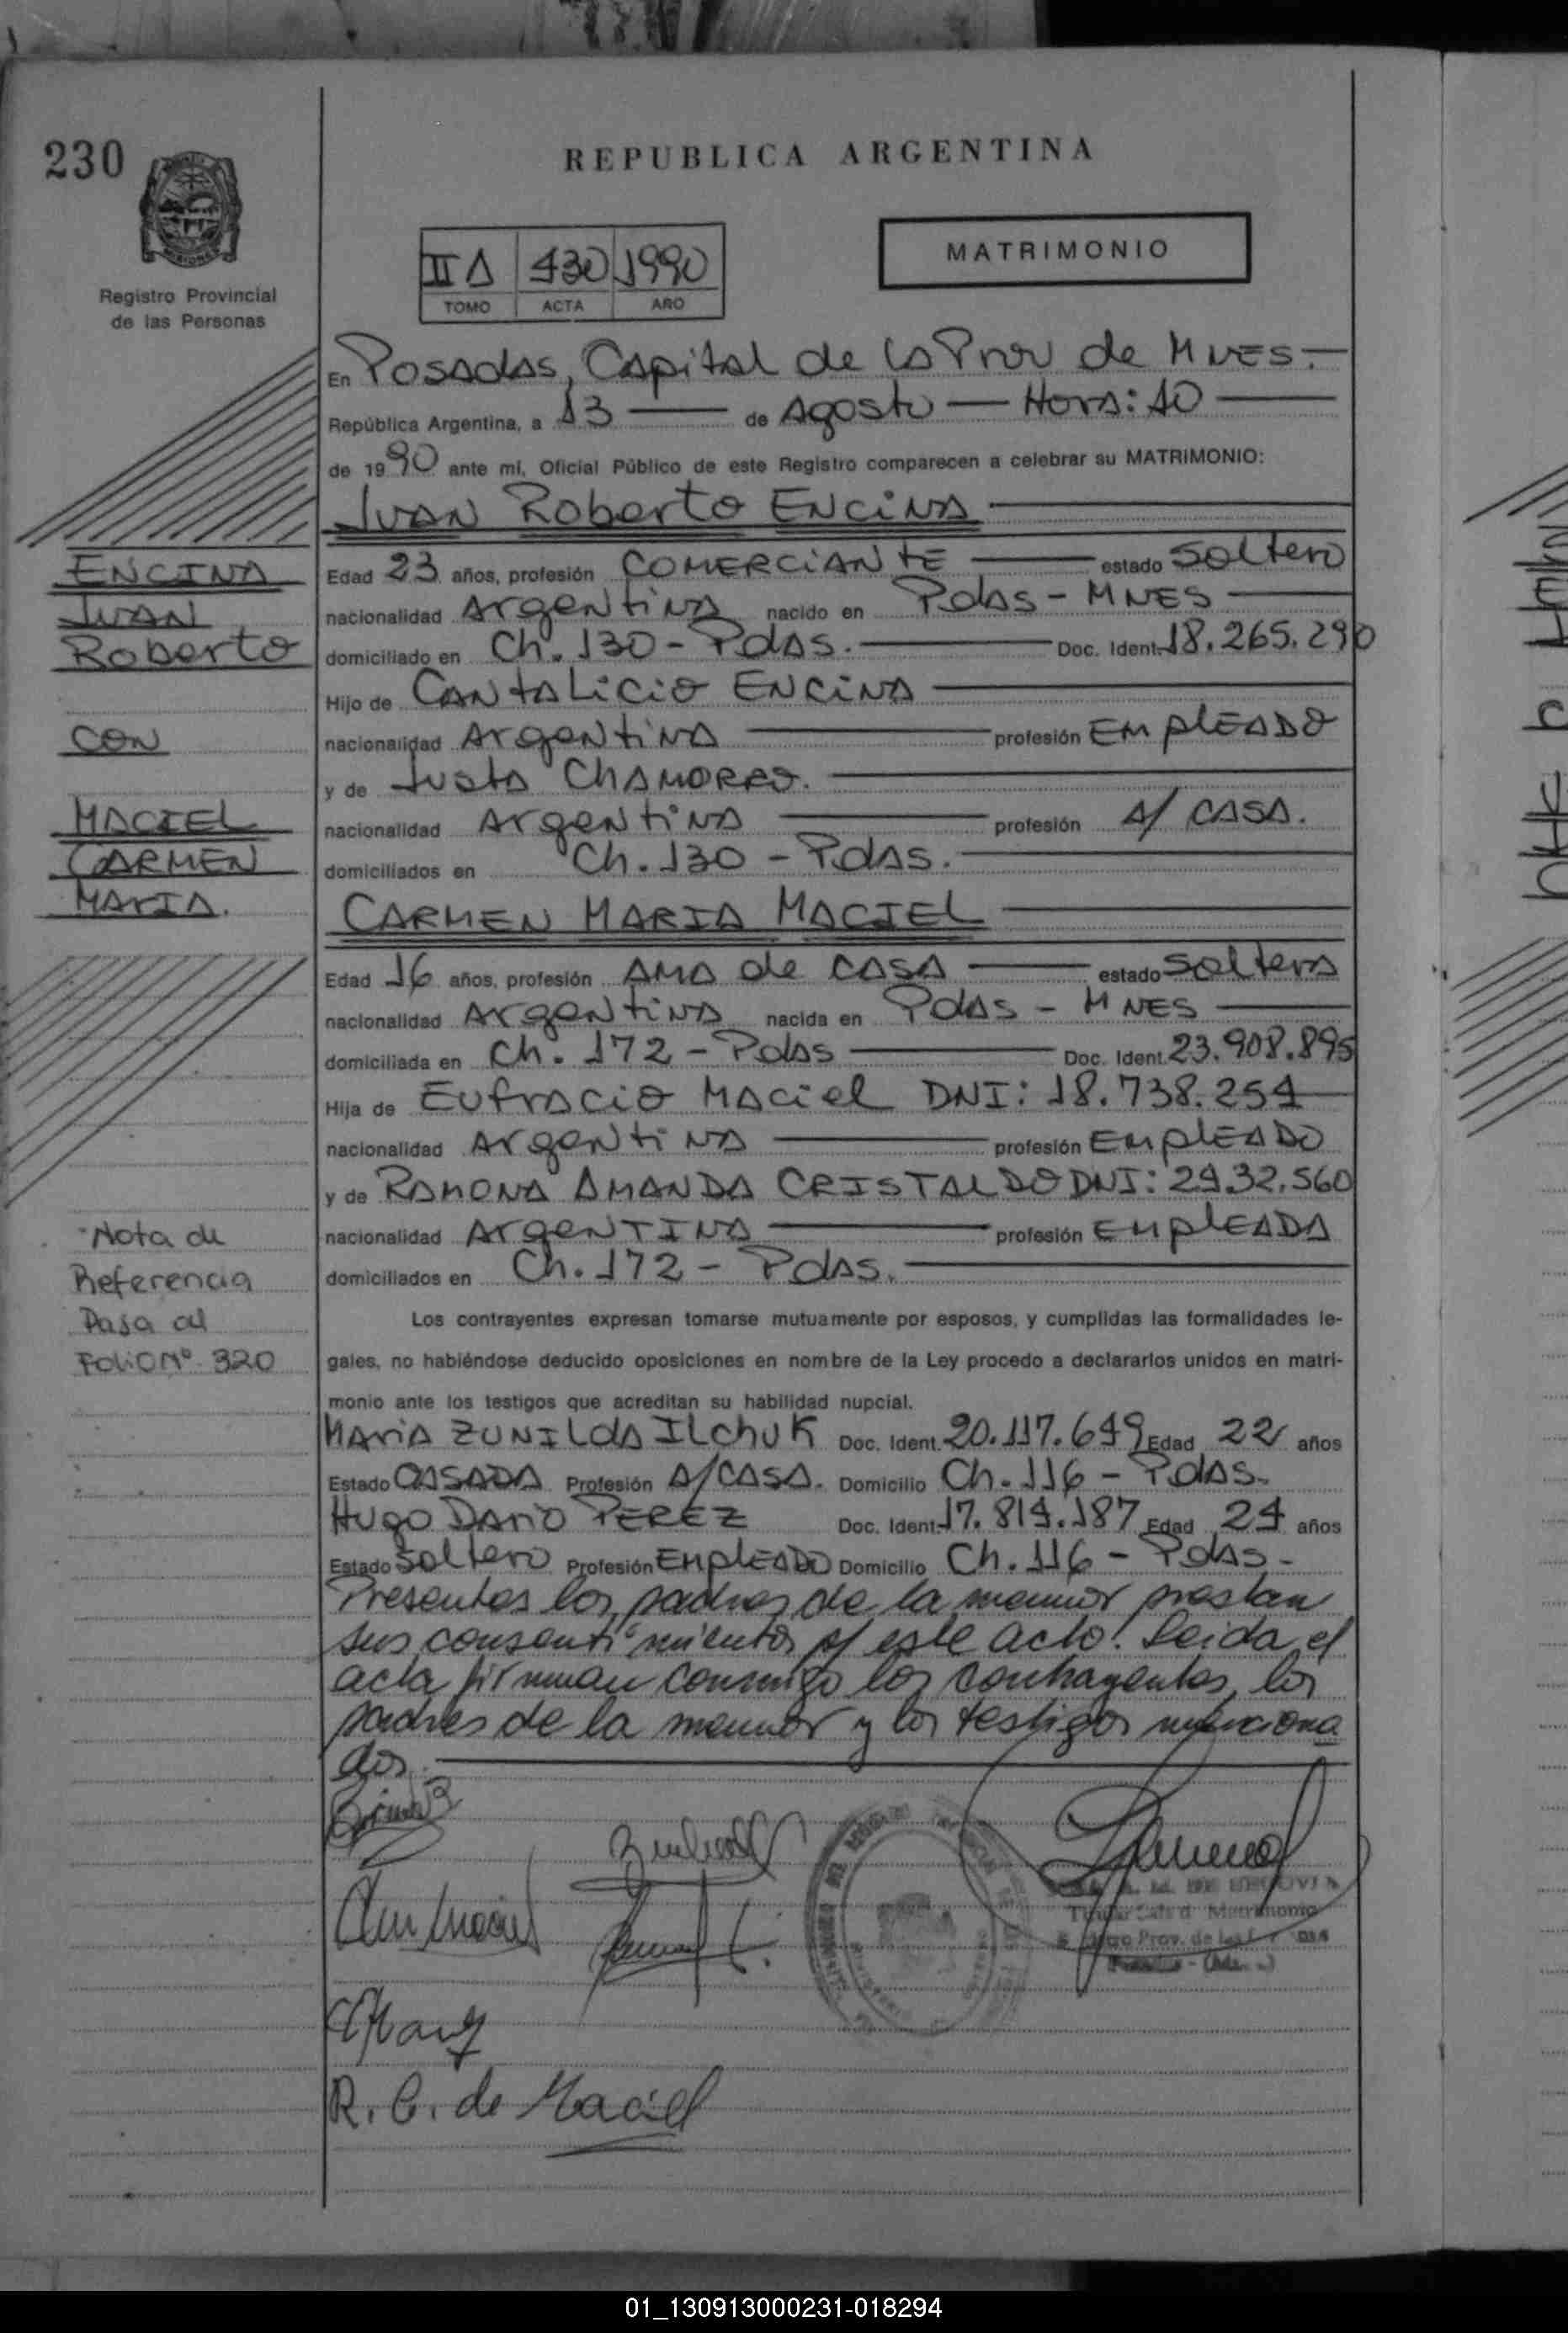 230
REPUBLICA ARGENTINA
MISIONES
Registro Provincial
de las Personas
II A 430 1990
TOMO ACTA AÑO
MATRIMONIO
En Posadas, Capital de la Prov de Mnes.
República Argentina, a 13 de Agosto Hora: 10
de 1990 ante mí, Oficial Público de este Registro comparecen a celebrar su MATRIMONIO:
Juan Roberto ENCINA
ENCINA
Juan
Roberto
con
MACIEL
CARMEN
MARIA.
Edad 23 años, profesión COMERCIANTE estado Soltero
nacionalidad Argentina nacido en Pdas - MNES
domiciliado en Ch. 130 - Pdas. Doc. Ident. 18.265.290
Hijo de CANTALICIO ENCINA
nacionalidad Argentina profesión EMPLEADO
y de Justa CHAMORRO.
nacionalidad Argentina profesión A/ CASA.
domiciliados en Ch. 130 - Pdas.
CARMEN MARIA MACIEL
Edad 16 años, profesión AMA de CASA estado Soltera
nacionalidad Argentina nacida en Pdas - MNES
domiciliada en Ch. 172 - Pdas Doc. Ident. 23.908.895
Hija de Eufracio Maciel DNI: 18.738.254
nacionalidad Argentina profesión EMPLEADO
y de RAMONA AMANDA CRISTALDO DNI: 2432.560
nacionalidad ARGENTINA profesión EMPLEADA
domiciliados en Ch. 172 - Pdas.
Nota de
Referencia
Pasa al
Folio Nº 320
Los contrayentes expresan tomarse mutuamente por esposos, y cumplidas las formalidades le-
gales, no habiéndose deducido oposiciones en nombre de la Ley procedo a declararlos unidos en matri-
monio ante los testigos que acreditan su habilidad nupcial.
Maria ZUNILDA ILchuK Doc. Ident. 20.117.649 Edad 22 años
Estado CASADA Profesión A/CASA. Domicilio Ch. 116 - Pdas.
Hugo Dario PEREZ Doc. Ident. 17.814.187 Edad 24 años
Estado Soltero Profesión EMPLEADO Domicilio Ch. 116 - Pdas -
Presentes los padres de la menor prestan
sus consentimientos p/ este acto. Leida el
acta firman conmigo los contrayentes, los
padres de la menor y los testigos menciona
dos.
R. C. de Maciel
DE SEGOVIA
Matrimonio
Prov. de las
01_130913000231-018294